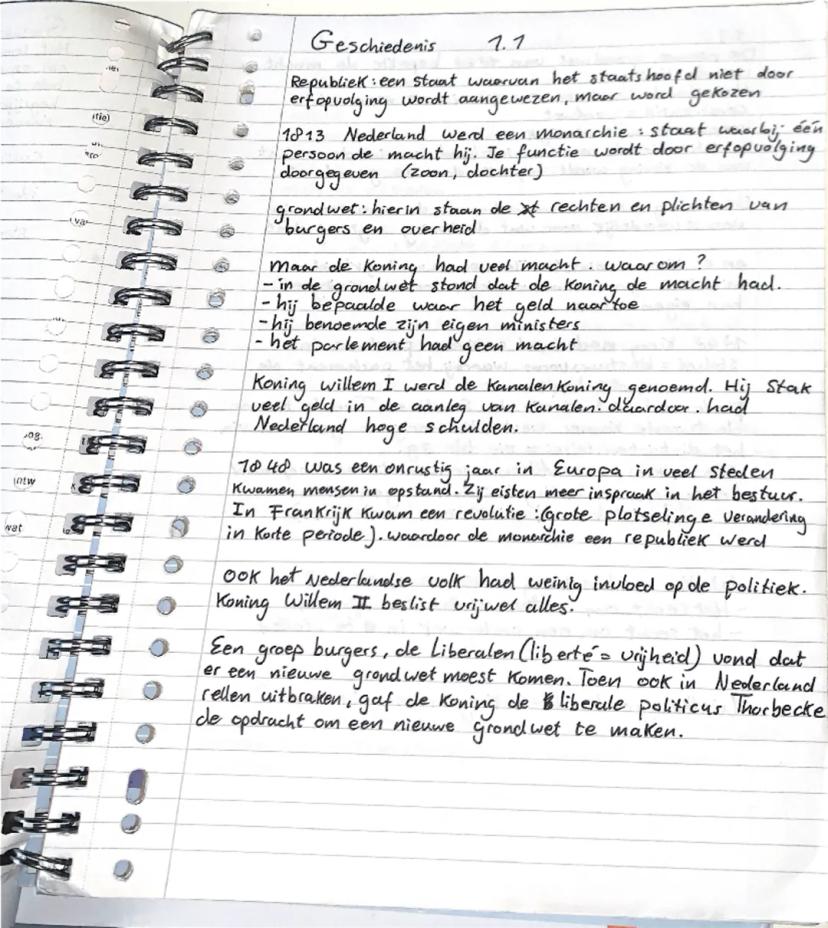 Geschiedenis 1.1
Republiek: een staat waarvan het staatshoofd niet door
erfopvolging wordt aangewezen, maar word gekozen
1813 Nederland werd een monarchie: staat waarbij één
persoon de macht hij. Je functie wordt door erfopvolging
doorgegeven (zoon, dochter)
grondwet: hierin staan de rechten en plichten van
burgers en overheid
maar de Koning had veel macht. waarom?
- in de grondwet stond dat de Koning de macht had.
- hij bepaalde waar het geld naartoe
- hij benoemde zijn eigen ministers
- het parlement had geen macht
Koning willem I werd de Kanalenkoning genoemd. Hij Stak
veel geld in de aanleg van Kanalen. daardoor. had
Nederland hoge schulden.
1848 was een onrustig jaar in Europa in veel steden
Kwamen mensen in opstand. Zij eisten meer inspraak in het bestuur.
In Frankrijk Kwam een revolutie: (grote plotselinge verandering
in Korte periode). waardoor de monarchie een republiek werd
OOK het Nederlandse volk had weinig invloed op de politiek.
Koning Willem II beslist vrijwel alles.
Een groep burgers, de Liberalen (liberté = vrijheid) vond dat
er een nieuwe grondwet moest Komen. Toen ook in Nederland
rellen uitbraken, gaf de Koning de liberale politicus Thorbecke
de opdracht om een nieuwe grondwet te maken.